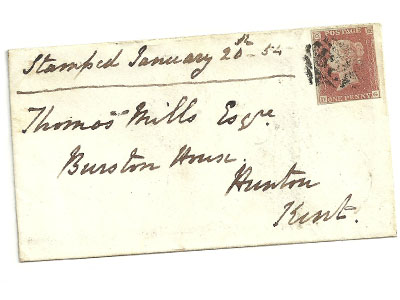 Stamped January 20st 54
POSTAGE
ONE PENNY
Thomas Mills Esqre
Burston House
Hunton
Kent.